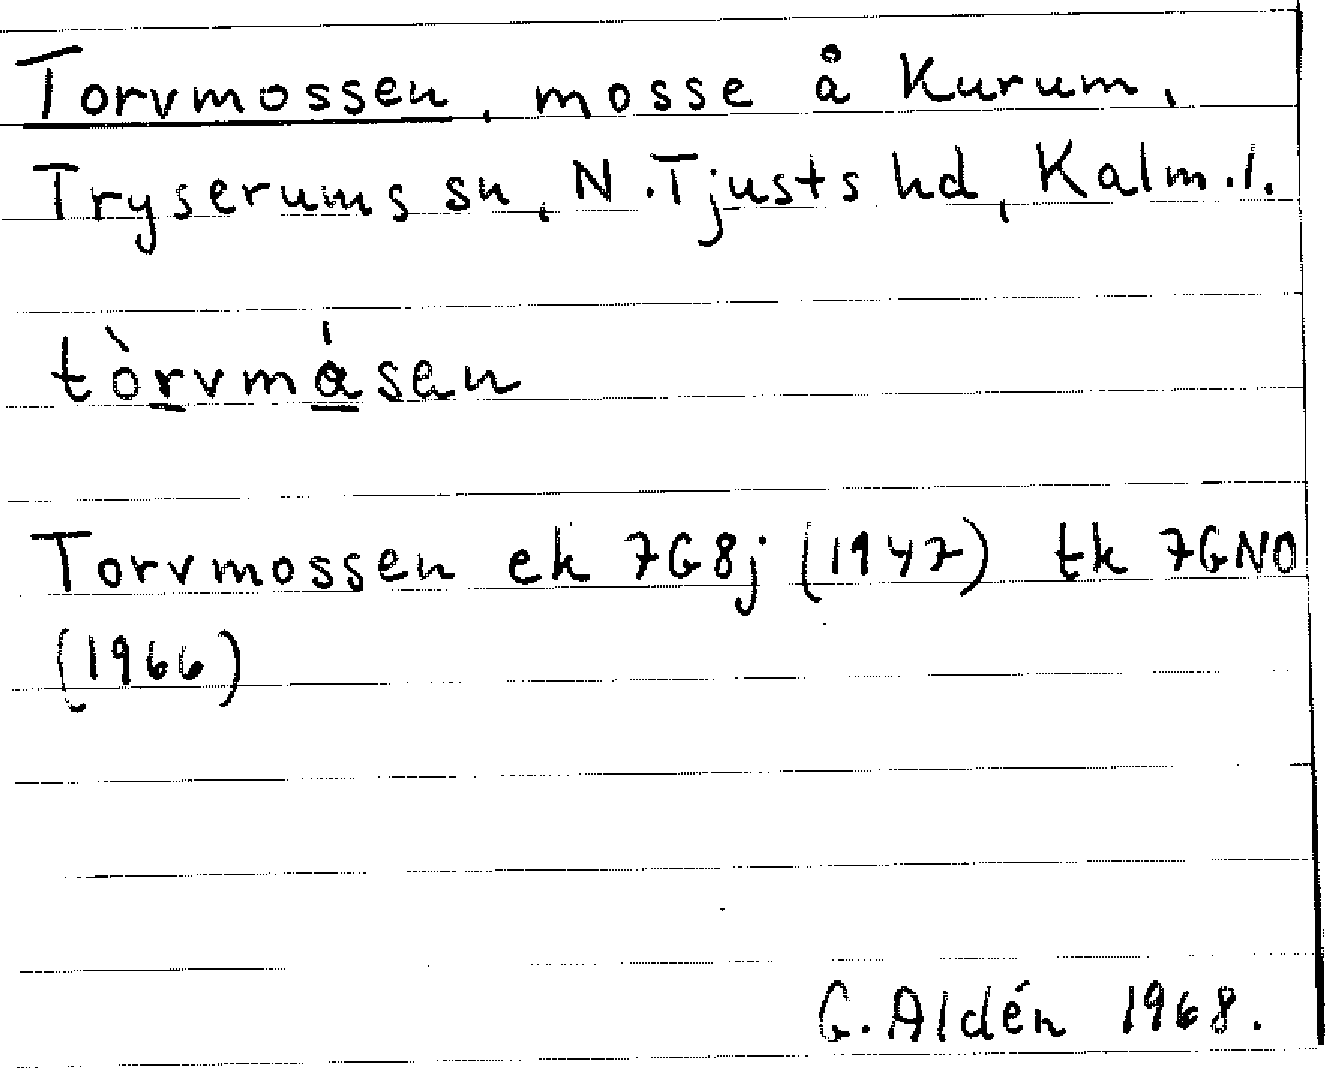 Torvmossen, mosse å Kurum,
Tryserums sn, N. Tjusts hd, Kalm. l.
tòrvmåsen
Torvmossen ek 7G8j (1947) tk 7GNO
(1966)
G. Aldén 1968.